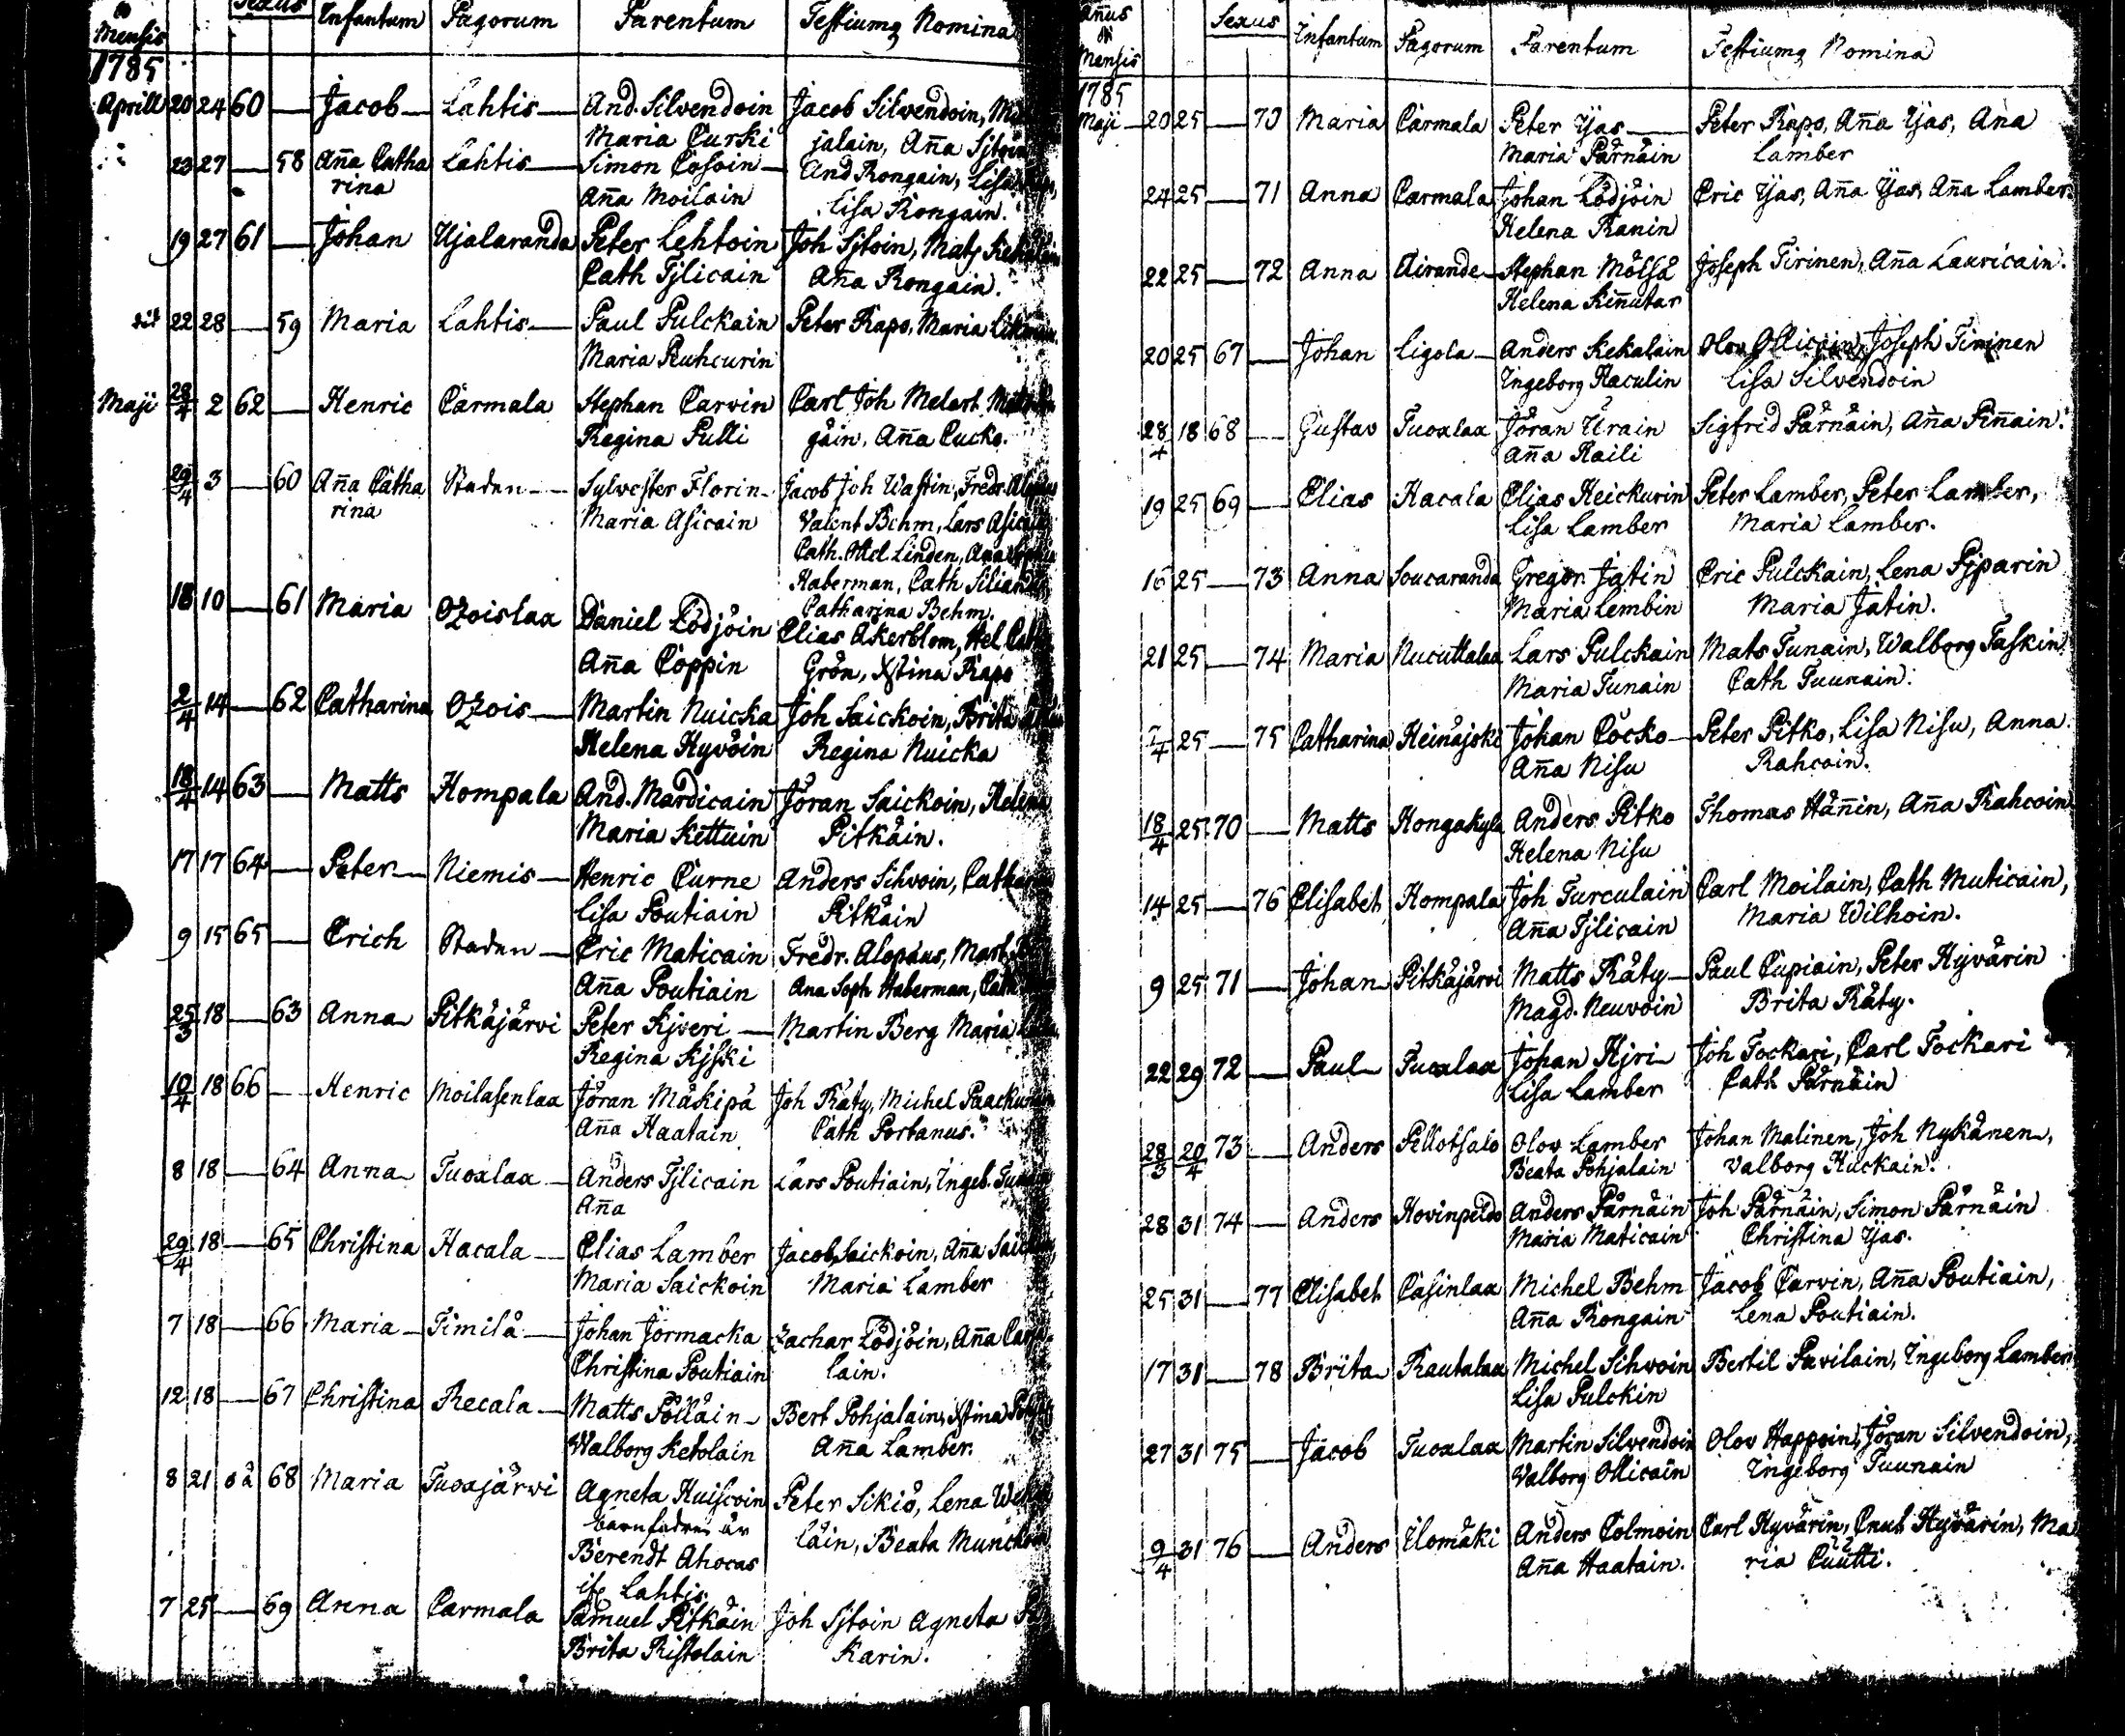 Sexus
Mensis Infantum Pagorum Parentum Testiumq Nomina
1785
Aprill 20 24 60 — Jacob — Lahtis — And. Silvendoin Jacob Silvendoin,
Maria Curki jalain, Aña Sjtoin
23 27 — 58 Aña Catha Lahtis — Simon Cosoin — And Rongain, Lisa
rina Aña Moilain Lisa Rongain.
19 27 61 — Johan Ujalaranda Peter Lehtoin Joh Sjtoin, Mats Kekälain
Cath Tjlicain Aña Rongain.
22 28 — 59 Maria Lahtis — Paul Pulckain Peter Rapo, Maria
Maria Ruhcurin
Maji 28/4 2 62 — Henric Carmala Stephan Carvin Carl Joh Melart
Regina Pulli gäin, Aña Cucko.
29/4 3 — 60 Aña Catha Staden — Sylvester Florin — Jacob Joh Wastin, Fredr.
rina Maria Asicain Valent Behm, Lars Asicain
Cath. Linden, Ana
Haberman, Cath
18 10 — 61 Maria Ozoislax Daniel Lödjöin Catharina Behm.
Elias Åkerblom, Hel
Aña Coppin Grön, Xstina Rapo
2/4 14 — 62 Catharina Ozois — Martin Nuicka Joh Saickoin, Brita
Helena Hyvöin Regina Nuicka
18/4 14 63 — Matts Hompala And. Mardicain Jöran Saickoin, Helena
Maria Kettuin Pitkäin.
17 17 64 — Peter — Niemis — Henric Curne Anders Sihvoin, Cathar
Lisa Poutiain Pitkäin
9 15 65 — Erich Staden — Eric Maticain Fredr. Alopäus, Mart.
Aña Poutiain Ana Soph Haberman, Cath
25/3 18 — 63 Anna Pitkäjärvi Peter Kjveri — Martin Berg Maria
Regina Kjski
10/4 18 66 — Henric Moilasenlax Jöran Mäkipä Joh Räty, Michel Paackunain
Aña Haatain Cath Portanus.
8 18 — 64 Anna Tuoxlax — Anders Tjlicain Lars Poutiain, Ingeb.
Aña
29/4 18 — 65 Christina Hacala — Elias Lamber Jacob Saickoin, Aña Saickoin
Maria Saickoin Maria Lamber
7 18 — 66 Maria — Timilä — Johan Jormacka Zachar Lödjöin, Aña
Christina Poutiain lain.
12 18 — 67 Christina Recala — Matts Pölläin — Bert Pohjalain, Xtina
Walborg Ketolain Aña Lamber.
8 21 oä 68 Maria Tuoxjärvi Agneta Huiscoin Peter Sikiö, Lena
barnfadren är läin, Beata Munckoin
Berendt Ahocas
if Lahtis
7 25 — 69 Anna Carmala Samuel Pitkäin Joh Sjtoin Agneta
Brita Ristolain Karin.
Añus
Mensis Sexus Infantum Pagorum Parentum Testiumq Nomina
1785
Maji — 20 25 — 70 Maria Carmala Peter Yas — Peter Rapo, Aña Yas, Ana
Maria Pärnäin Lamber
24 25 — 71 Anna Carmala Johan Lödjöin Eric Yas, Aña Yas, Aña Lamber.
Helena Ranin
22 25 — 72 Anna Airande — Stephan Mölsä Joseph Tirinen, Aña Lauricain.
Helena Kiñutar
20 25 67 — Johan Ligola — Anders Kekalain Olov Ollicain, Joseph Tirinen
Ingeborg Haculin Lisa Silvendoin
28/4 18 68 — Gustav Tuoxlax Jöran Urain Sigfrid Pärnäin, Aña Piñain.
Aña Raili
19 25 69 — Elias Hacala Elias Heickurin Peter Lamber, Peter Lamber,
Lisa Lamber Maria Lamber.
16 25 — 73 Anna Soucaranda Gregor Jatin Eric Pulckain, Lena Pjparin
Maria Lembin Maria Jatin.
21 25 — 74 Maria Nucuttalax Lars Pulckain Mats Tunain, Walborg Taskin
Maria Tunain Cath Tuunain.
25 — 75 Catharina Heinäjoki Johan Cocko — Peter Pitko, Lisa Nisu, Anna
Aña Nisu Rahcoin.
18/4 25 70 — Matts Hongakyla Anders Pitko Thomas Häñin, Aña Rahcoin
Helena Nisu
14 25 — 76 Elisabet Hompala Joh Turculain Carl Moilain, Cath Muticain,
Aña Tjlicain Maria Wilhoin.
9 25 71 — Johan — Pitkäjärvi Matts Räty — Paul Cupiain, Peter Hyvärin
Magd. Neuvoin Brita Räty.
22 29 72 — Paul — Tuoxlax Johan Hjri — Joh Tockari, Carl Tockari
Lisa Lamber Cath Pärnäin
28/3 20/4 73 — Anders Pellotsalo Olov Lamber Johan Malinen, Joh Nykänen,
Beata Pohjalain Valborg Huckain.
28 31 74 — Anders Hovinpeldo Anders Pärnäin Joh Pärnäin, Simon Pärnäin
Maria Maticain Christina Yas.
25 31 — 77 Elisabet Casinlax Michel Behm Jacob Carvin, Aña Poutiain,
Aña Rongain Lena Poutiain.
17 31 — 78 Brita — Rautalax Michel Sihvoin Bertil Pavilain, Ingeborg Lamber
Lisa Pulckin
27 31 75 — Jacob Tuoxlax Martin Silvendoin Olov Happoin, Jöran Silvendoin,
Valborg Ollicain Ingeborg Tuunain
9/4 31 76 — Anders Ilomäki Anders Colmoin Carl Hyvärin, Cnut Hyvärin, Ma
Aña Haatain. ria Cuutti.